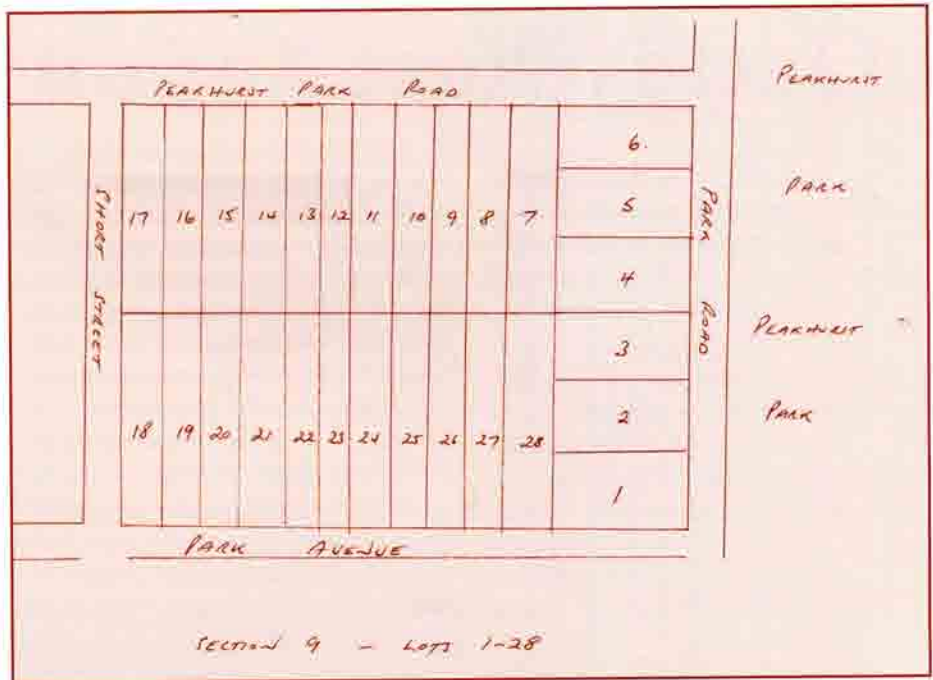 PEAKHURST PARK ROAD
PEAKHURST
PARK
PEAKHURST
PARK
SHORT STREET
PARK ROAD
6.
5
4
3
2
1
17 16 15 14 13 12 11 10 9 8 7
18 19 20 21 22 23 24 25 26 27 28
PARK AVENUE
SECTION 9 - LOTS 1-28